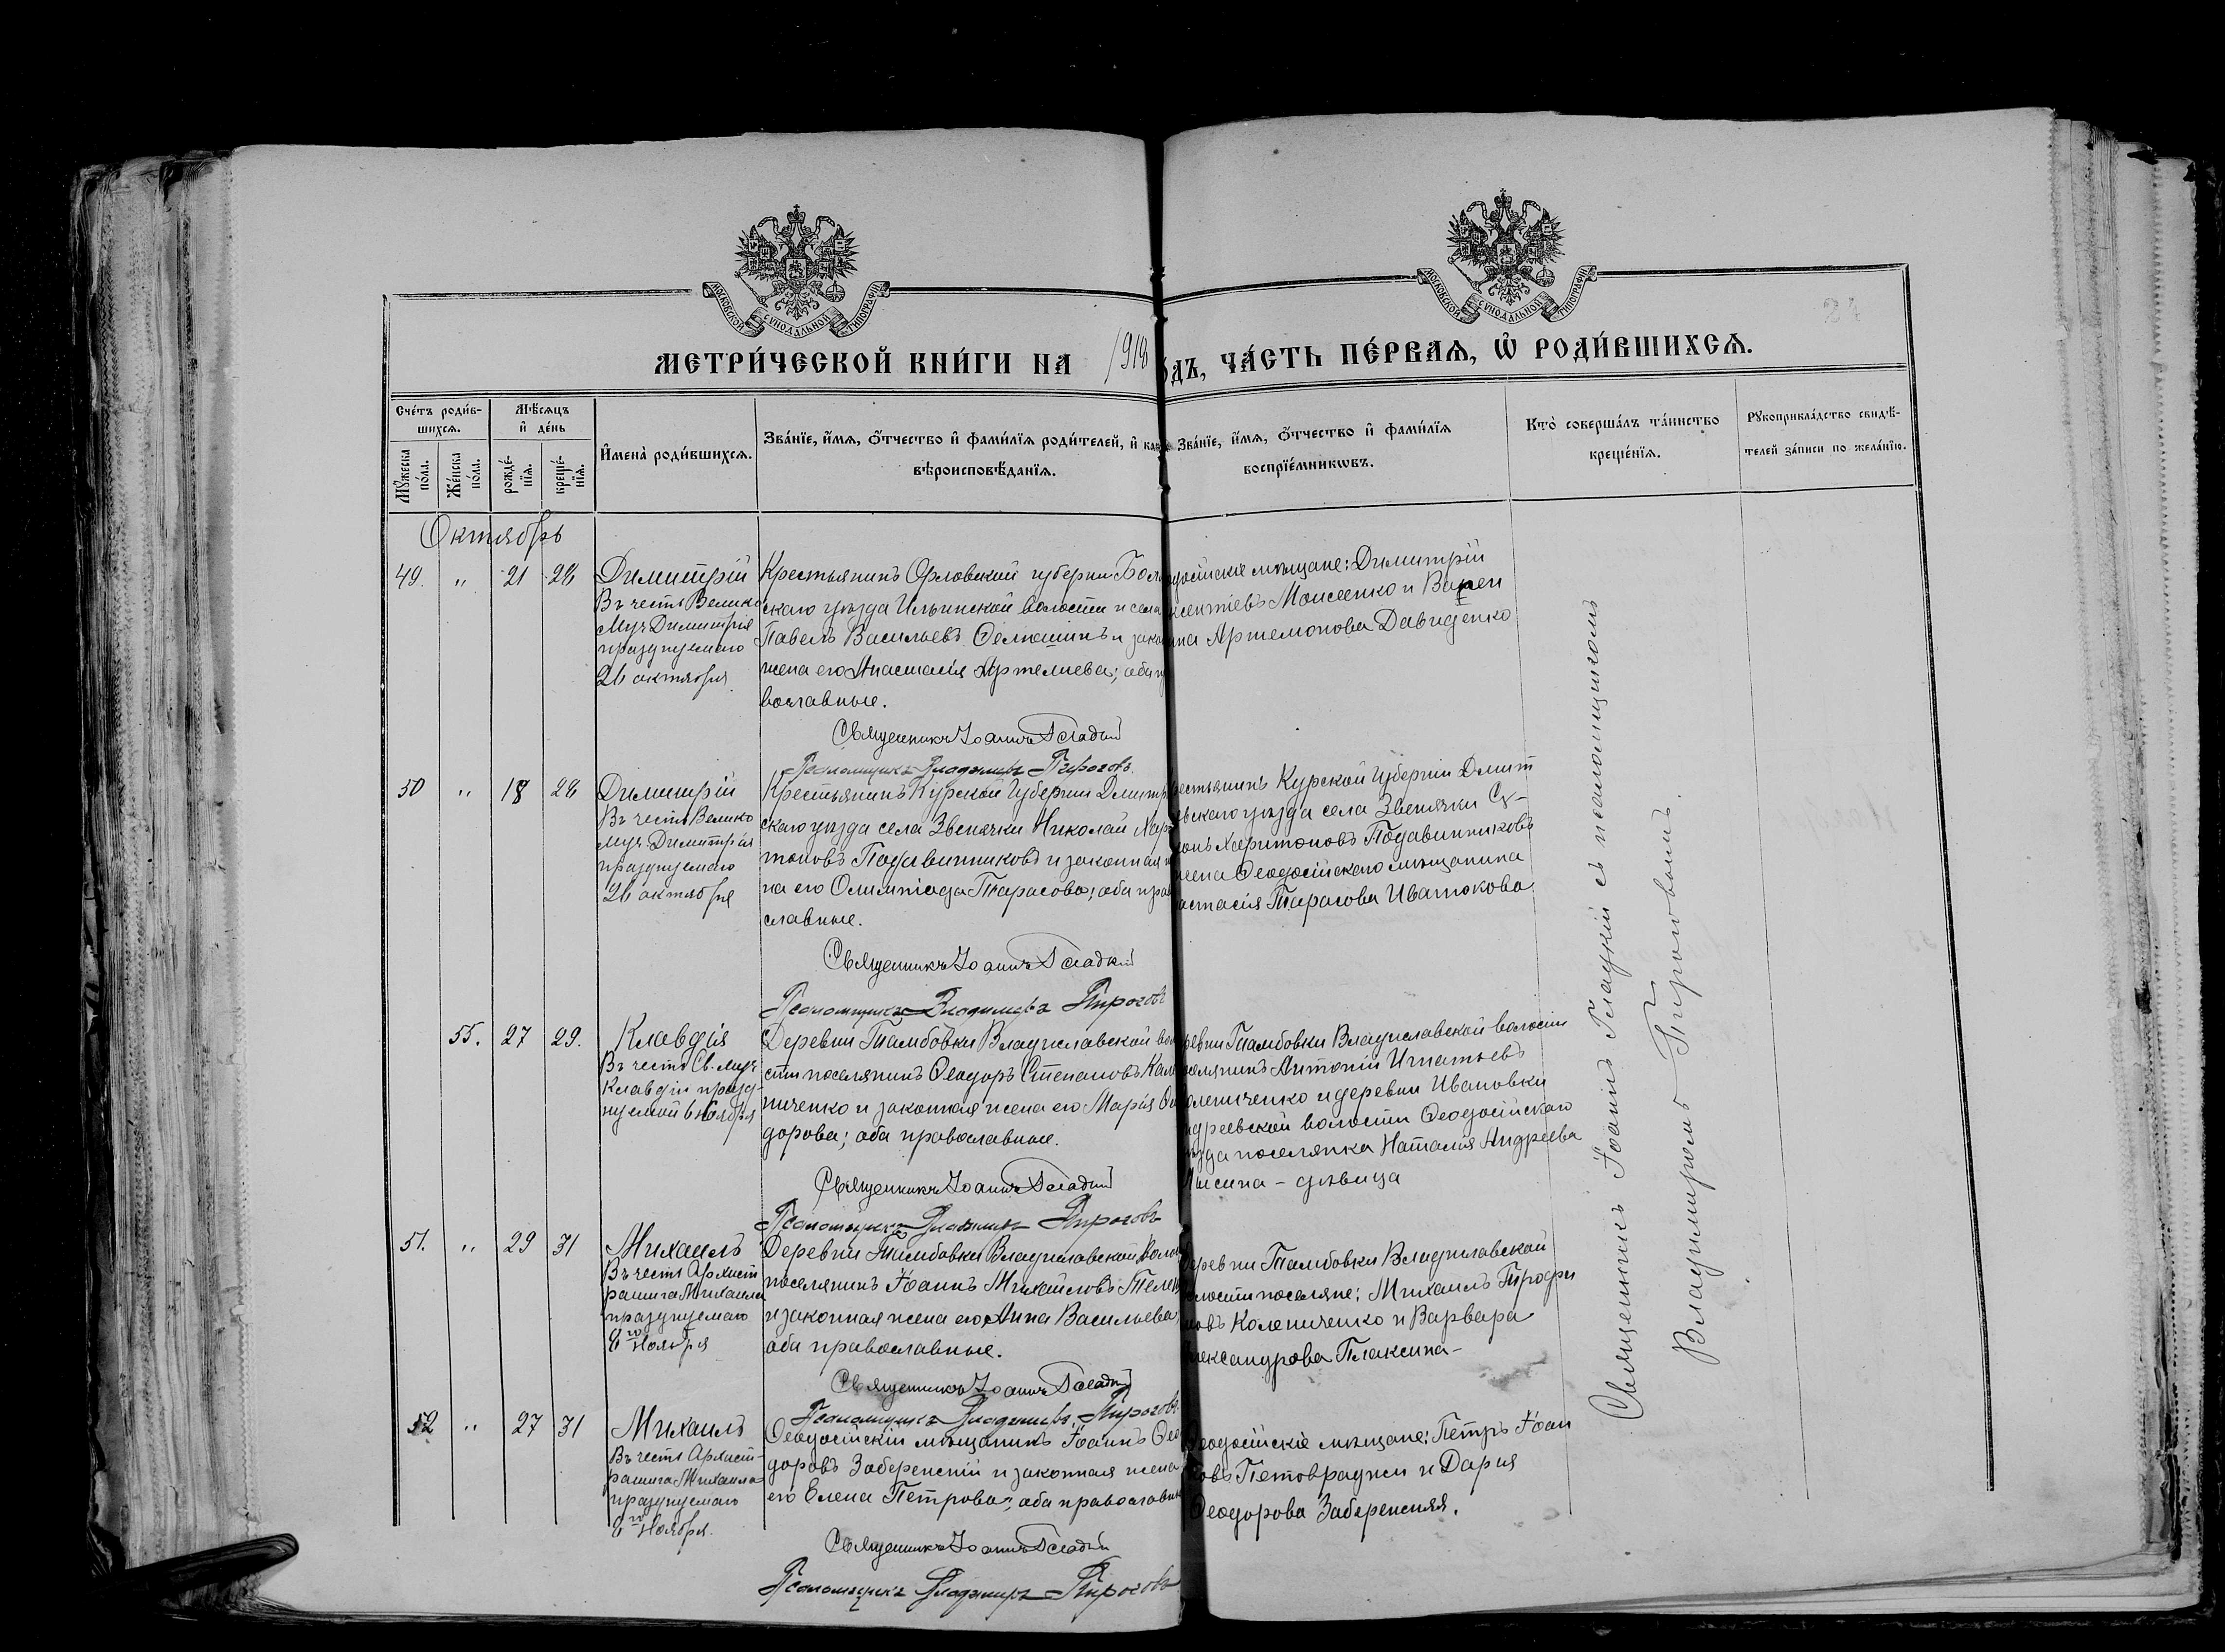 МОСКОВСКОЙ СѴНОДАЛЬНОЙ ТИПОГРАФІИ
МОСКОВСКОЙ СѴНОДАЛЬНОЙ ТИПОГРАФІИ
24
МЕТРИ́ЧЕСКОЙ КНИ́ГИ НА 1918
ДЪ, ЧА́СТЬ ПЕ́РВАѦ, Ѡ РОДИ́ВШИХСѦ.
Сче́тъ роди́в-
шихсѧ.
Мꙋ́жеска по́ла.
Же́нска по́ла.
Мѣ́сѧцъ
и҆ де́нь
рожде́-
нїѧ.
креще́-
нїѧ.
И҆мена̀ роди́вшихсѧ.
Зва́нїе, и҆́мѧ, ѻ҆́тчество и҆ фами́лїѧ роди́телей, и҆
вѣроисповѣ́данїѧ.
Зва́нїе, и҆́мѧ, ѻ҆́тчество и҆ фами́лїѧ
воспрїе́мникѡвъ.
Кто̀ соверша́лъ та́инство
креще́нїѧ.
Рꙋкоприкла́дство свидѣ́-
телей за́писи по жела́нїю.
Октябрь
49. " 21 28
Димитрій
Въ честь Велико
Муч Димитрія
празднуемаго
26 октября
Крестьянинъ Орловской губерніи Бол
скаго уѣзда Ильинской волости и села
Павелъ Васильевъ и зако
жена его Анастасія Артемиева; оба п
вославные.
Священникъ Іоаннъ Гладкій
Псаломщикъ Владимиръ Пироговъ
досійскіе мѣщане: Димитрій
ксентіевъ Моисеенко и Варен
ина Артемонова Давиденко
50 " 18 28
Димитрій
Въ честь Велико
муч. Димитрія
празднуемаго
26 октября
Крестьянинъ Курской Губерніи Дмитр
скаго уѣзда села Звенячки Николай Хари
тоновъ Подавинниковъ и законная
на его Олимпіада Тарасова; оба пра
славные.
Священникъ Іоаннъ Гладкій
Псаломщикъ Владимиръ Пироговъ
естьянинъ Курской Губерніи Дмит
евскаго уѣзда села Звенячки
онъ Харитоновъ Подавинниковъ
жена Ѳеодосійскаго мѣщанина
астасія Тарасова Иватокова
55. 27 29.
Клавдія
Въ честь Св. муч
Клавдіи празд-
нуемой 6 ноября
Деревни Тамбовки Владиславской во
сти поселянинъ Ѳеодоръ Степановъ Кале
ниченко и законная жена его Марія Ѳео
дорова; оба православные.
Священникъ Іоаннъ Гладкій
Псаломщикъ Владимиръ Пироговъ
ревни Тамбовки Владиславской волости
селянинъ Антоній Игнатьевъ
олениченко и деревни Ивановки
ндреевской волости Ѳеодосійскаго
ѣзда поселянка Наталія Андреева
Лысина - дѣвица
51. " 29 31
Михаилъ
Въ честь Архист
ратига Михаила
празднуемаго
8го Ноября
Деревни Тамбовки Владиславской Воло
поселянинъ Іоаннъ Михайловъ
и законная жена его Анна Васильева;
оба православные.
Священникъ Іоаннъ Гладкій
Псаломщикъ Владимиръ Пироговъ
Деревни Тамбовки Владиславской
олости поселяне: Михаилъ Трофи
мовъ Колениченко и Варвара
лександрова Плаксина -
52 " 27 31
Михаилъ
Въ честь Архист-
ратига Михаила
празднуемаго
8го Ноября.
Ѳеодосійскій мѣщанинъ Іоаннъ Ѳео
доровъ Заберенскій и законная жена
его Елена Петрова; оба православные
Священникъ Іоаннъ Гладкій
Псаломщикъ Владимиръ Пироговъ
Ѳеодосійскіе мѣщане: Петръ Іоан
новъ и Дарія
Ѳеодорова Заберенская.
Священникъ Іоаннъ Гладкій съ псаломщикомъ
Владимиромъ Пироговымъ.